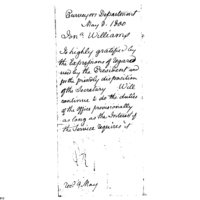 Purveyors Department
May 3. 1800
Jon.ª Williams
Is highly gratified by
the Expressions of regard
used by the President and
for the friendly disposition
of the Secretary Will
continue to do the duties
of the Office provisionally
as long as the Interest of
the Service requires it
recd 4 May